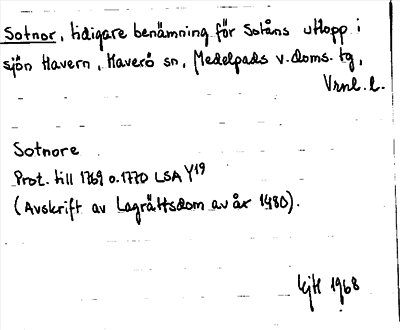 Sotnor, tidigare benämning för Sotåns utlopp i
sjön Havern, Haverö sn, Medelpads v. doms. tg,
Vrnl. l.
Sotnore
Prot. till 1769 o. 1770 LSA Y19
(Avskrift av Lagrättsdom av år 1480).
1968